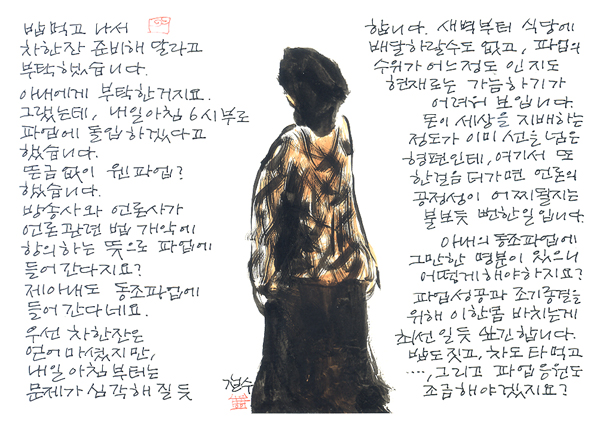 밥먹고 나서
차한잔 준비해 달라고
부탁했습니다.
아내에게 부탁한거지요.
그랬는데, 내일아침 6시부로
파업에 돌입하겠다고
했습니다.
뜬금없이 웬파업?
했습니다.
방송사와 언론사가
언론관련 법 개악에
항의하는 뜻으로 파업에
들어 간다지요?
제아내도 동조파업에
들어 간다네요.
우선 차한잔은
얻어마셨지만,
내일 아침부터는
문제가 심각해 질 듯
합니다. 새벽부터 식당에
배달하랄수도 없고, 파업의
수위가 어느정도 인지도
현재로는 가늠하기가
어려워 보입니다.
돈이 세상을 지배하는
정도가 이미 선을 넘은
형편인데, 여기서 또
한걸음 더가면 언론의
공정성이 어찌될지는
불보듯 뻔한일 입니다.
아내의 동조파업에
그만한 명분이 있으니
어떻게해야하지요?
파업성공과 조기종결을
위해 이한몸 바치는게
최선일듯 싶긴합니다.
밥도짓고, 차도 타먹고
····, 그리고 파업응원도
조금해야겠지요?
철수